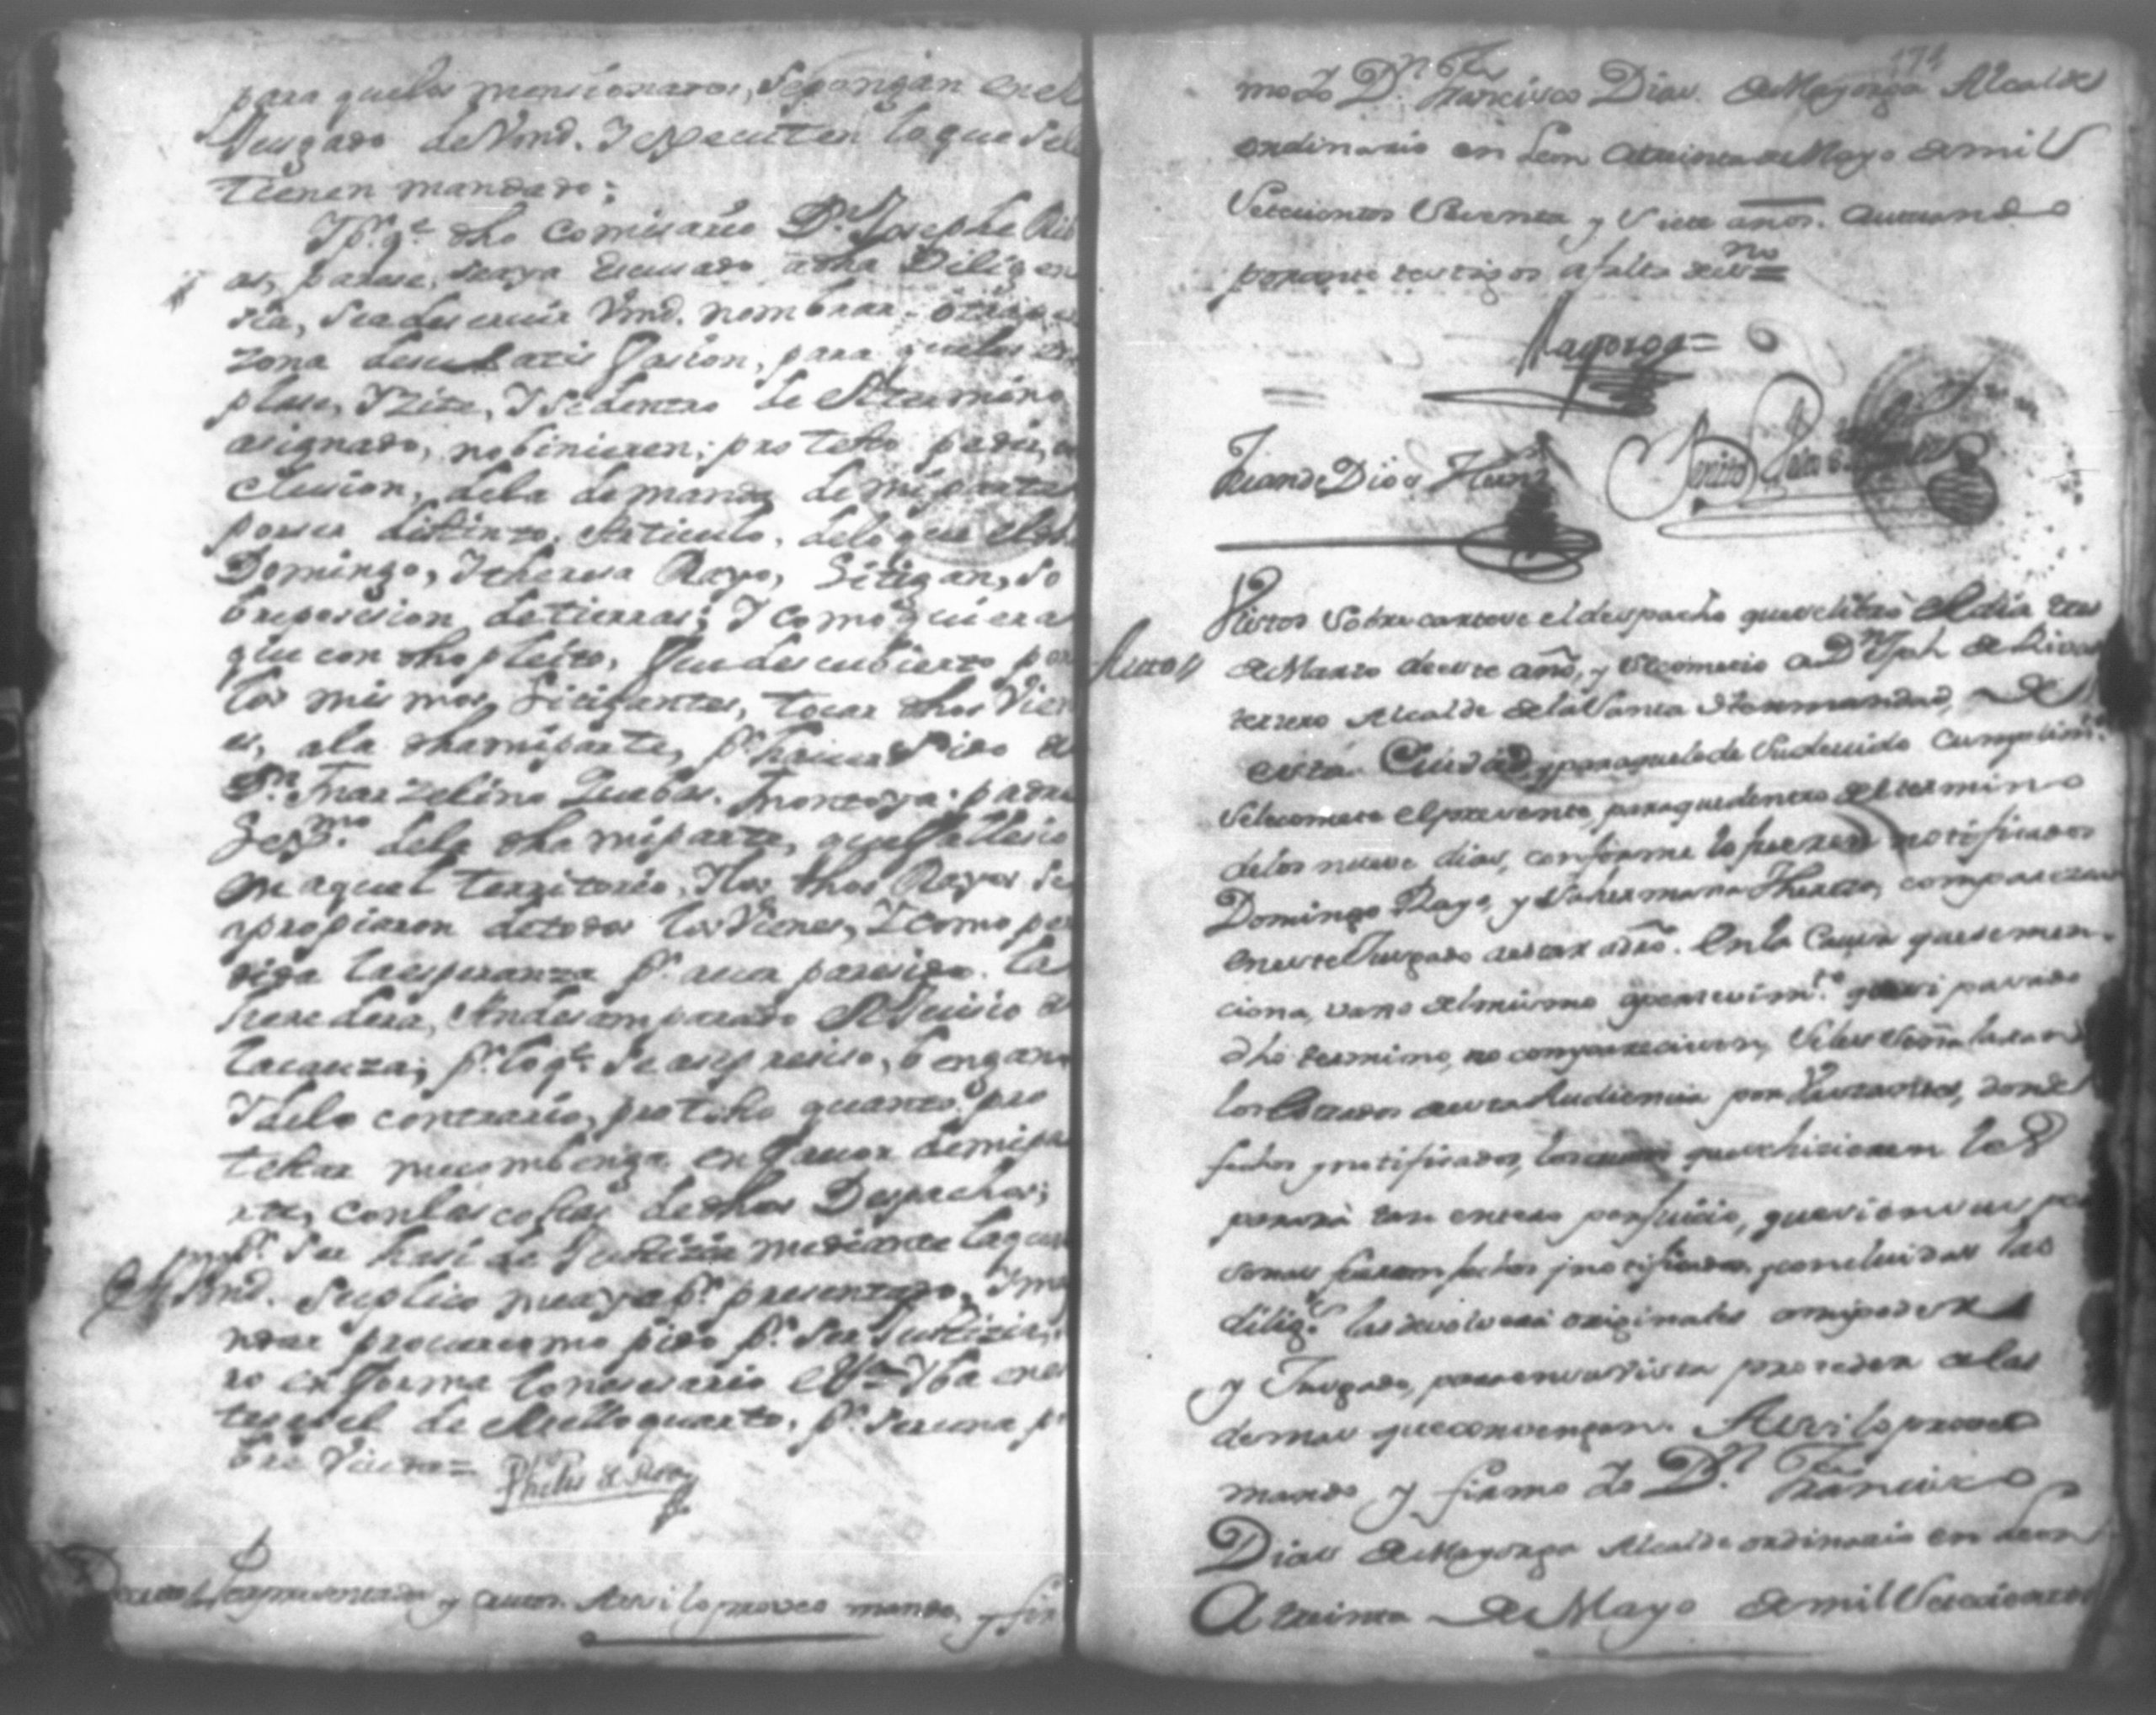 para quelos mensionados, Sepongan en el
Jusgado de Vmd. Y ejecuten lo que Sele
tienen mandado;
Y pr. qe. dho Comisario Dn. Josephe Rib
as, parese, seaya escusado adha Dilig en
sia, sea deservir Vmd. nombrar otra per
zona desu satis fasion, para quelos em
plase, Y Zite, Y Sedentro de el termino
asignado, no binieren; pro testo pedir, ex
clusion, dela demanda de mi parte
por ser distinto, Articulo, delo que el dho
Domingo, Y theresa Rayo, Litigan, So
bre posesion de tierras; Y como quiera
que con dho pleito, Fue descubierto por
los mis mos, Litigantes, tocar dhos Vien
es, ala dha mi parte, pr. hauer Sido de
Dn. Marzelino Montoya. padre
Legmo. dela dha mi parte, que fallesio
en aquel territorio, Y los dhos Rayos se
apropiaron de todos los Vienes, Y como per
dida la esperanza pr. auer paresido. la
heredera, An desamparado el Juisio de
la cauza; pr. lo qe. Se ase presiso, bengan
Y delo contrario, pro testo quanto pro
testar me combenga en fauor demi pa
rte, con las costas de dhos Despachos;
pr. Ser hasi de Justizia mediante la qual
A Vmd. Suplico me aya pr. presentado, Y ma
ndar proueer como pido pr. Ser Justizia, ju
ro en forma lo nesesario Va en es
te papel de Sello quarto, pr. Ser una po
bre Viuda=
Por presentada y autos. Assi lo proveo mando, y fir
174
mo Yo Dn. Francisco Dias de Mayorga Alcalde
ordinario en Leon a treinta de Mayo de mil
Setecientos Setenta y Siete años. Actuando
por ante testigos a falta de esno=
Mayorga=
Juan de Dios
Benito
Auto//
Vistos Sobre cartese el despacho que se libró el dia tres
de Marzo de este año, y se cometio a Dn. Jph de Rivas
tercero Alcalde de la Santa Hermandad, de
esta Ciudad y para que le de su devido cumplimto.
Sele comete el presente, para que dentro del termino
de los nueve dias, conforme lo fueren notificados
Domingo Rayo, y su hermana Thereza, comparezcan
en este Jusgado a estar a dro. en la Causa que se men
ciona, vajo del mismo apersevimto. que si pasado
dho termino, no comparecieren, Seles Señalaran
los Estrados de esta Audiencia por bastantes, donde
fechos y notificados, los autos que se hicieren les
parará tan entero perjuicio, que si en sus per
sonas fueran fechos y notificados, y concluidas las
dilig.s las devolverá originales a mi poder
y Jusgado, para en su vista proceder a las
demas que convengan. Assi lo proveo
mando y firmo Yo Dn. Francisco
Dias de Mayorga Alcalde ordinario en Leon
A treinta de Mayo de mil Setecientos